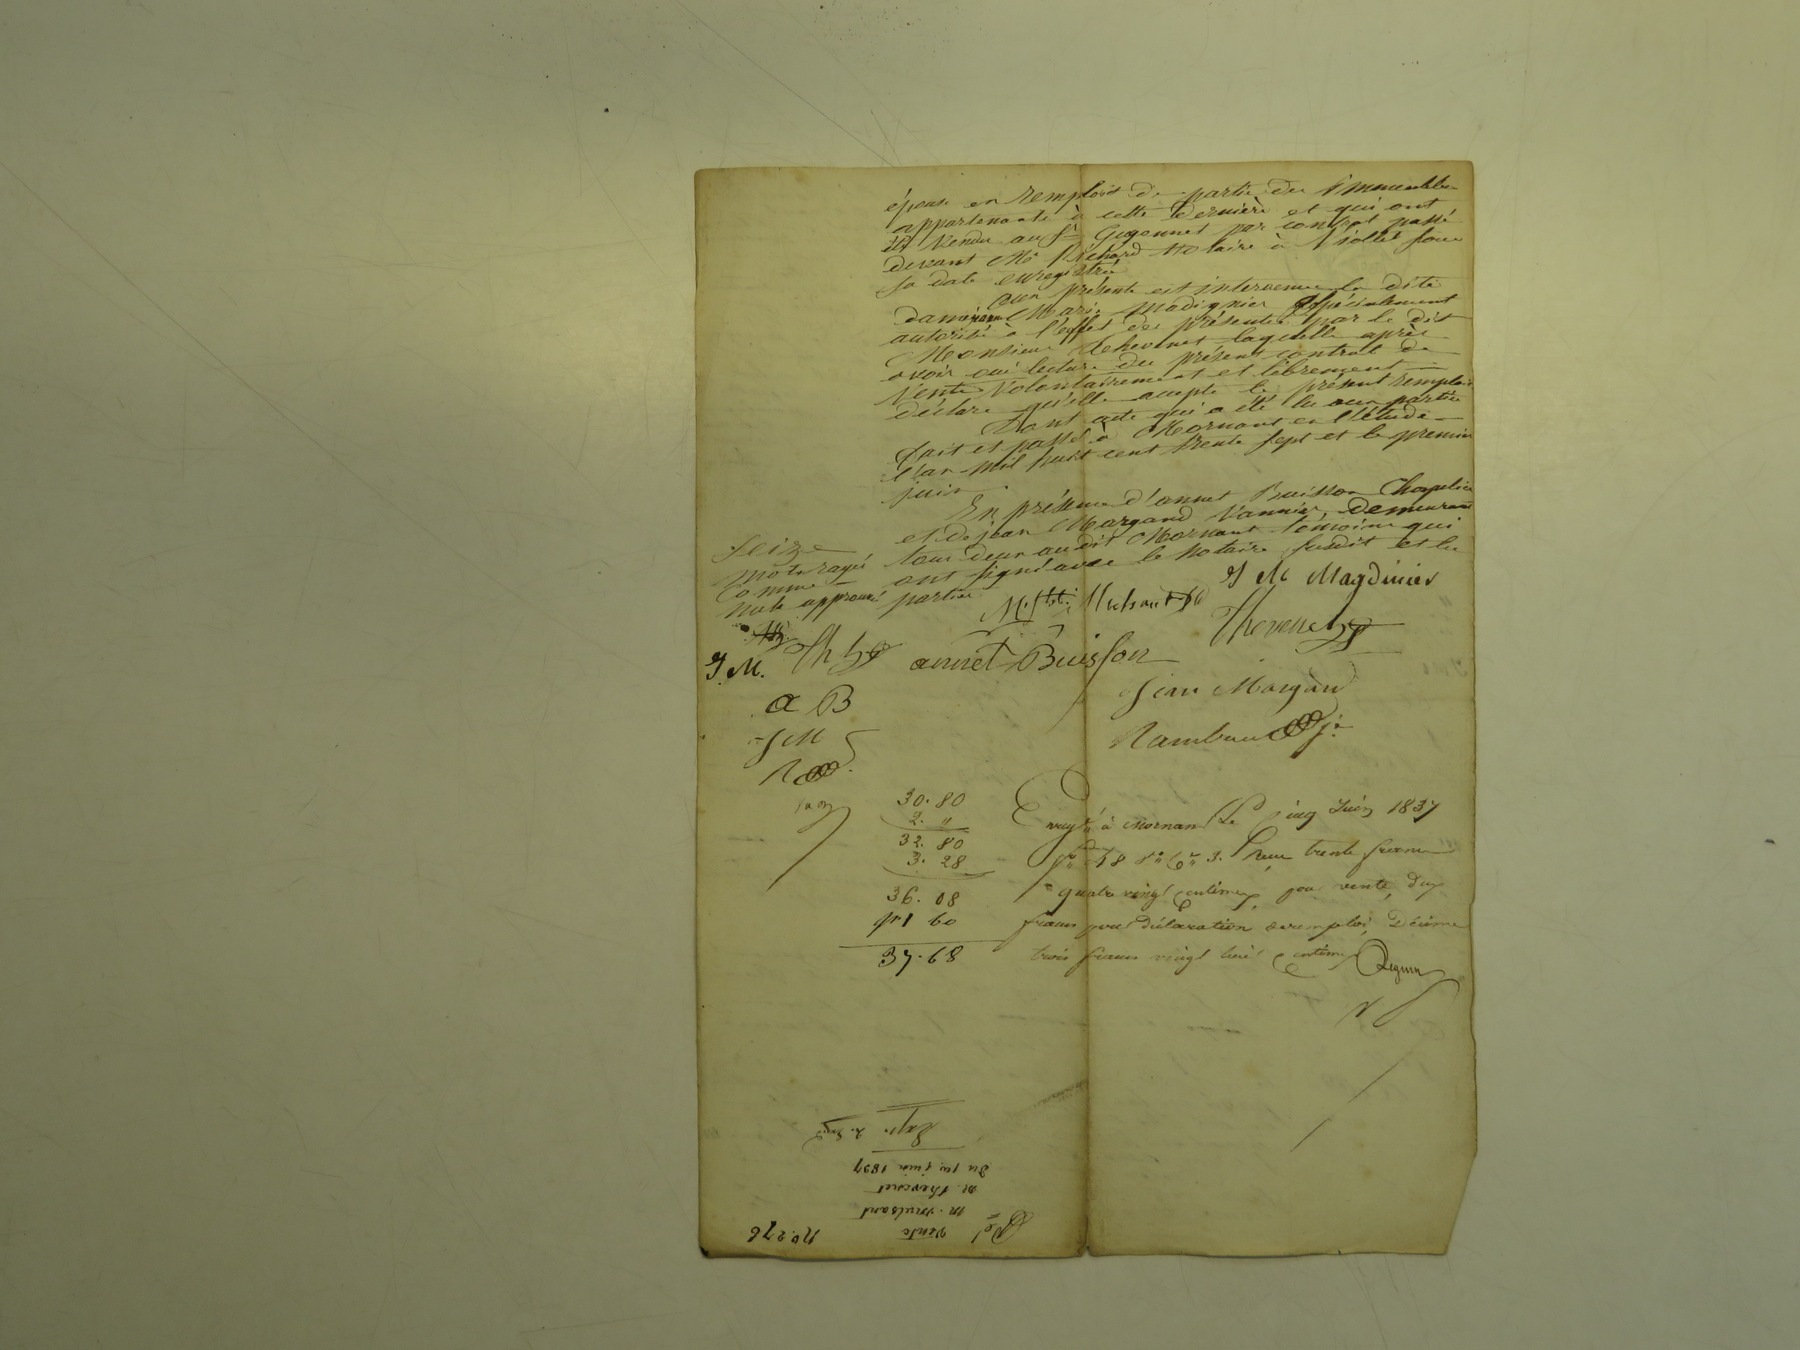 épouse en remploit de partie des immeubles
appartenants à cette dernière et qui ont
été vendu au Sr Guyonnet par contrat passé
devant Me Richard Notaire à Violles sous
sa date enregistré
aux présente est intervenue la dite
dame Marie Madignier spécialement
autorité à l'effet des présentes par le dit
Monsieur Thevenet laquelle après
avoir oui lecture du présent contrat de
vente volontairement et librement
déclare qu'elle accepte le présent remploi
Dont acte qui a été lu aux partie
fait et passé à Mornant en l'étude
l'an mil huit cent trente sept et le premier
juin.
En présence d'annet Buisson Chapelier
et de jean Margand vannier demeurant
tous deux au dit Mornant témoins qui
ont signé avec le Notaire susdit et les
parties
Seize
mots rayés
comme
nuls approuvé
J M Magdinier
Mulsant
Thevenet
J M. Th
annet Buisson
a B
Jean Margand
J M
Rambaud
30. 80
2. "
32. 80
3. 28
36. 08
1 60
37. 68
Enregé à Mornant Le cinq Juin 1837
fo 58 Ro Ce 3. Reçu trente francs
quatre vingt centimes, pour vente, deux
francs pour déclaration de remploi, Décime
trois francs vingt huit centimes
Exp.
du 1er juin 1837
M. Thevenet
M. Mulsant
vente
No. 276